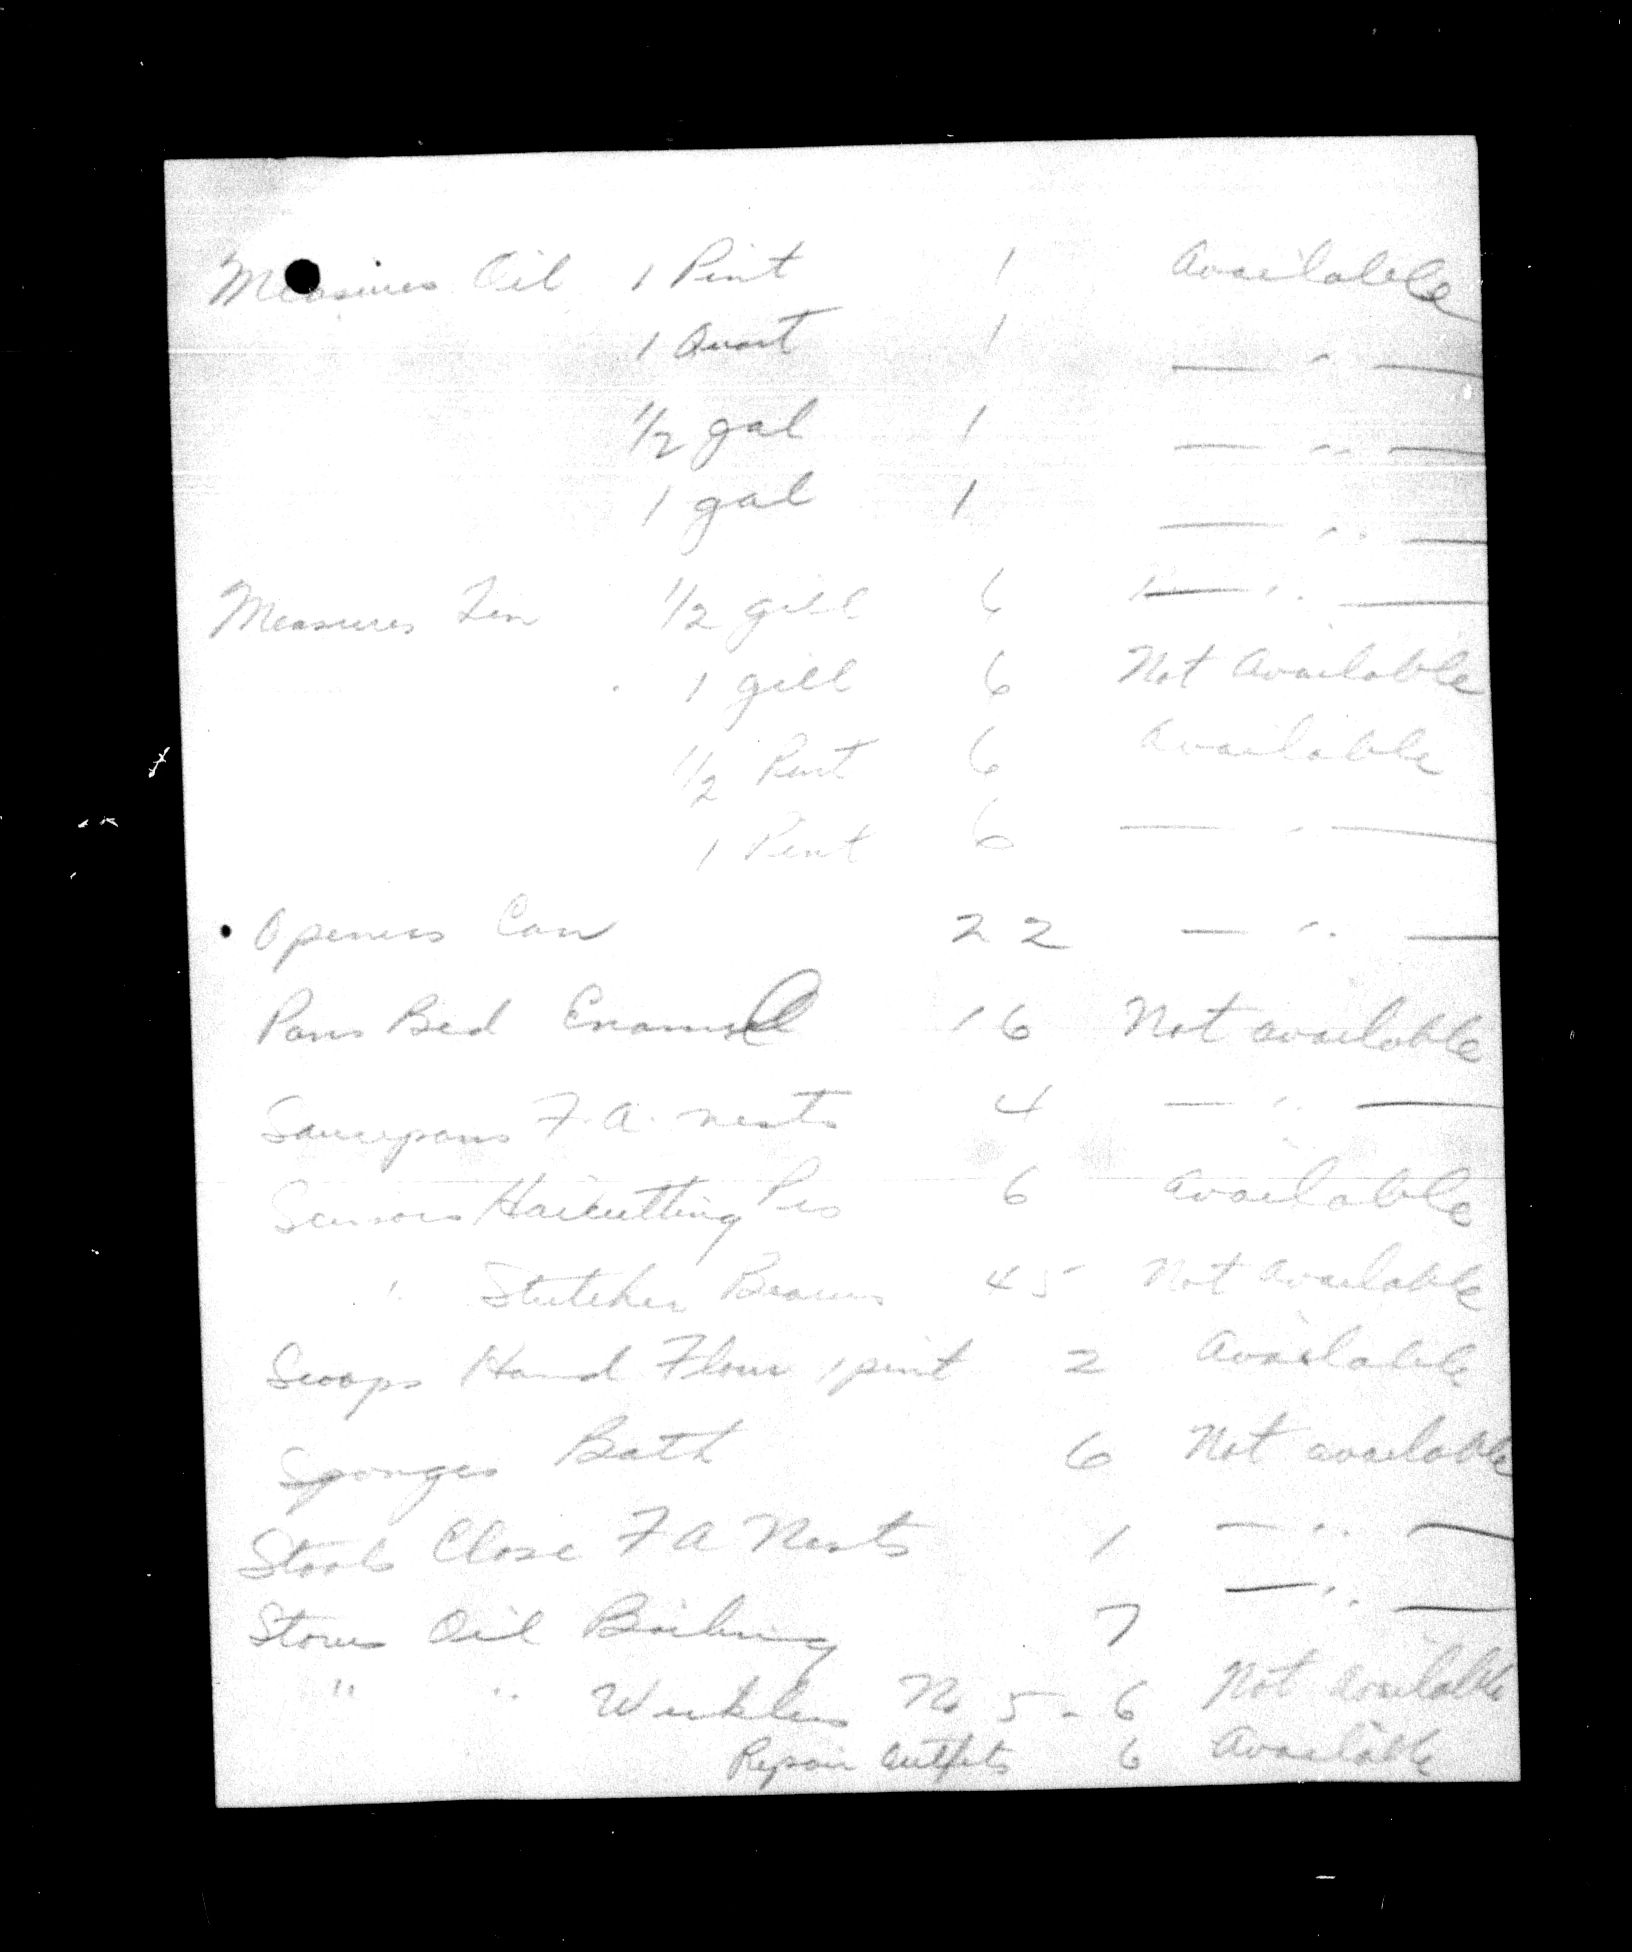 Measures Oil 1 Pint 1 Available
1 Quart 1 — " —
1/2 gal 1 — " —
1 gal 1 — " —
Measures Tin 1/2 gill 6 — " —
1 gill 6 Not Available
1/2 Pint 6 Available
1 Pint 6 — " —
Openers Can 22 — " —
Pans Bed Enamel 16 Not available
Saucepans F.A. nests 4 — " —
Scissors Haircutting Prs 6 Available
" Stretcher Bearers 45 Not Available
Scoops Hand Flour 1 pint 2 Available
Sponges Bath 6 Not available
Stools Close F A Nests 1 — " —
Stoves Oil Boiling 7 — " —
" " No 5 - 6 Not Available
Repair Outfits 6 Available